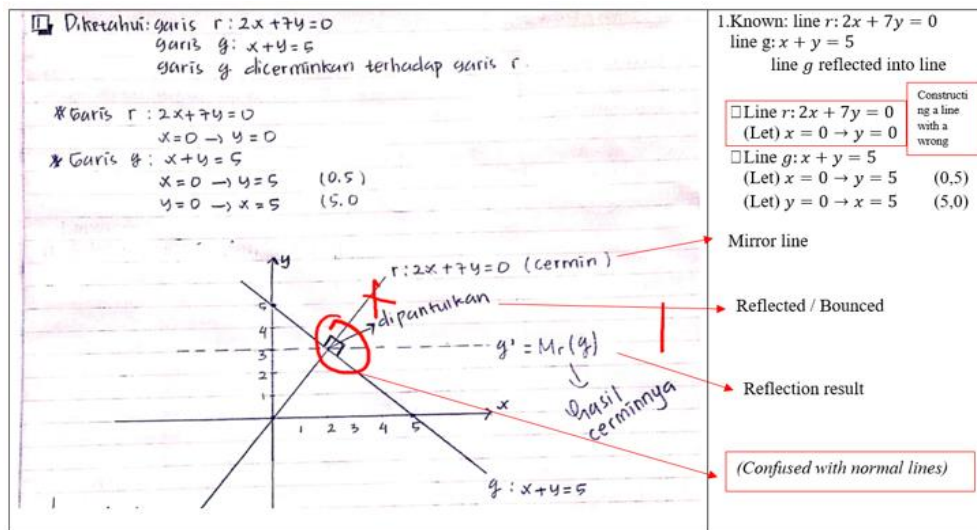 1 Diketahui: garis r : 2x + 7y = 0
garis g : x + y = 5
garis g dicerminkan terhadap garis r.
* Garis r : 2x + 7y = 0
x = 0 → y = 0
* Garis g : x + y = 5
x = 0 → y = 5 (0,5)
y = 0 → x = 5 (5,0
y
r : 2x + 7y = 0 (cermin)
dipantulkan
5
4
3
2
1
g' = Mr(g)
hasil
cerminnya
x
1 2 3 4 5
g : x + y = 5
1.Known: line r: 2x + 7y = 0
line g: x + y = 5
line g reflected into line
□Line r: 2x + 7y = 0
(Let) x = 0 → y = 0
Constructi
ng a line
with a
wrong
□Line g: x + y = 5
(Let) x = 0 → y = 5 (0,5)
(Let) y = 0 → x = 5 (5,0)
Mirror line
Reflected / Bounced
Reflection result
(Confused with normal lines)